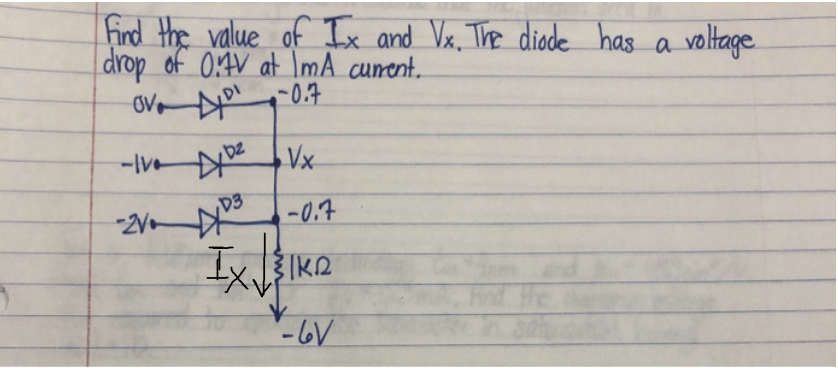 Find the value of Ix and Vx. The diode has a voltage
drop of 0.7V at 1mA current.
0V D1 -0.7
-1V D2 Vx
-2V D3 -0.7
Ix 1KΩ
-6V